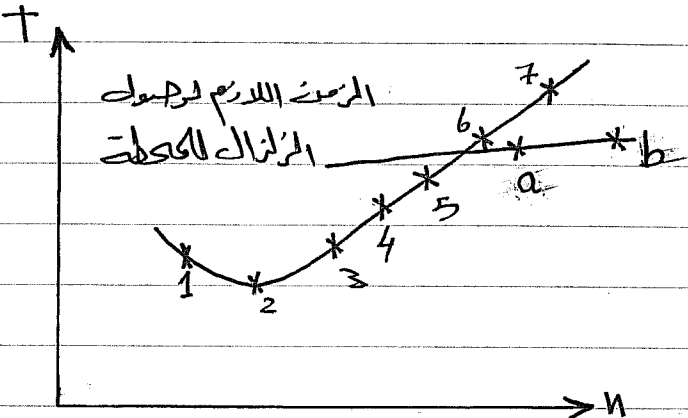 T
الزمن اللازم لوصول
الزلزال للمحطة
7
6
a
b
5
4
3
1
2
n